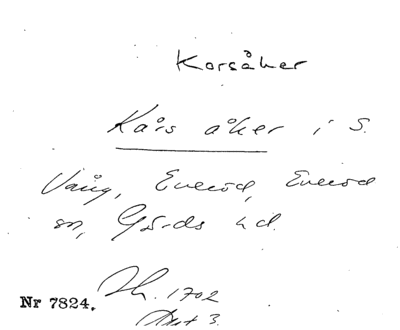 Korsåker
Kårs åker i S.
Vång, Everöd, Everöd
sn, Gärds hd.
Nr 7824. 1702
Akt 3.